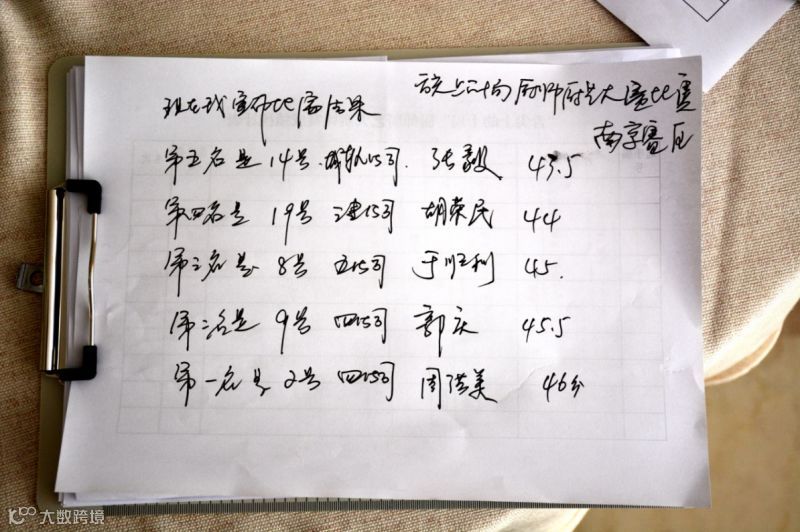 现在我宣布比赛结果
厨师厨艺大赛比赛
南京赛区
第五名是 14号 城轨公司 张毅 43.5
第四名是 19号 公司 胡荣民 44
第三名是 8号 五公司 于顺利 45.
第二名是 9号 四公司 郭庆 45.5
第一名是 2号 四公司 周洪美 46分
大数跨境